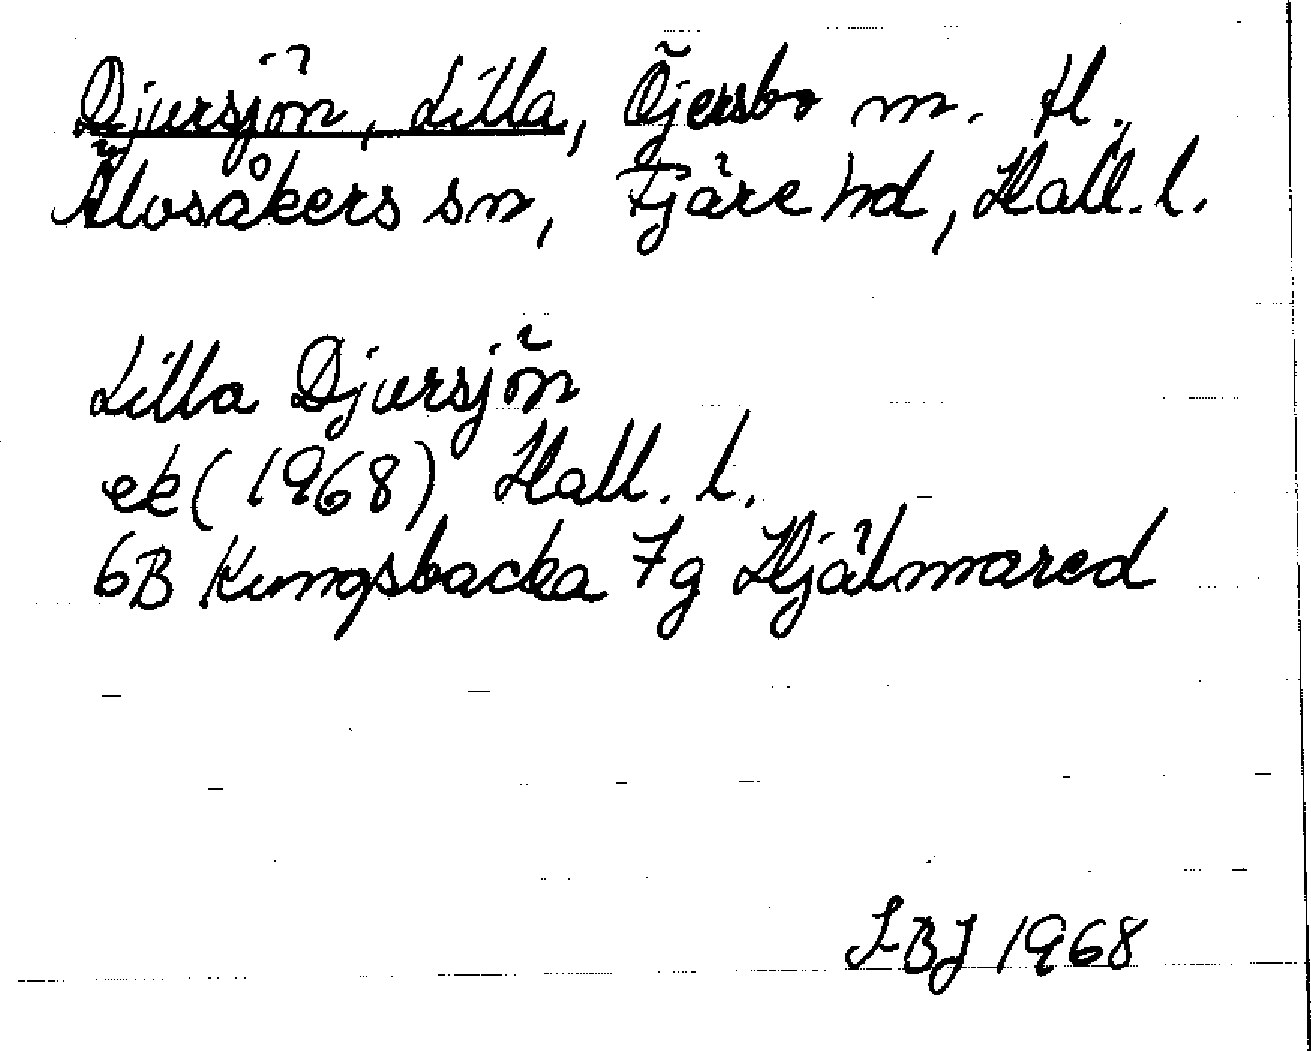 Djursjön, Lilla, Öjersbo m. fl.,
Älvsåkers sn, Fjäre hd, Hall. l.
Lilla Djursjön
ek (1968) Hall. l.
6B Kungsbacka 7g Hjälmared
LBJ 1968